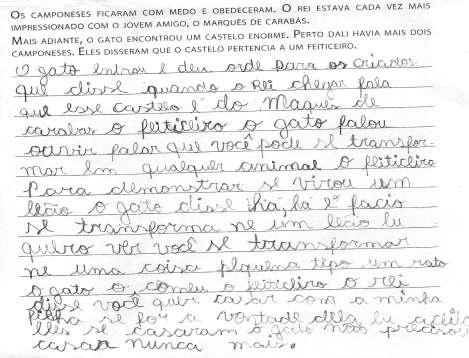 OS CAMPONESES FICARAM COM MEDO E OBEDECERAM. O REI ESTAVA CADA VEZ MAIS
IMPRESSIONADO COM O JOVEM AMIGO, O MARQUÊS DE CARABÁS.
MAIS ADIANTE, O GATO ENCONTROU UM CASTELO ENORME. PERTO DALI HAVIA MAIS DOIS
CAMPONESES. ELES DISSERAM QUE O CASTELO PERTENCIA A UM FEITICEIRO.
O gato entrou e deu orde para os criados
que disse quando o Rei chegar fala
que esse castelo é do Maques de
carabas o feiticeiro o gato falou
ouvir falar que você pode se transfor-
mar em qualquer animal o feiticeiro
Para demonstrar se virou um
leão o gato disse iha, há é facio
se transforma ne um leão eu
quero ver você se transformar
ne uma coisa pequena tipo um rato
o gato o, comeu o feiticeiro o rei
disse você quer casar com a minha
filha se for a vontade dela eu aceito
eles se casaram o gato não precisou
casar nunca mais.